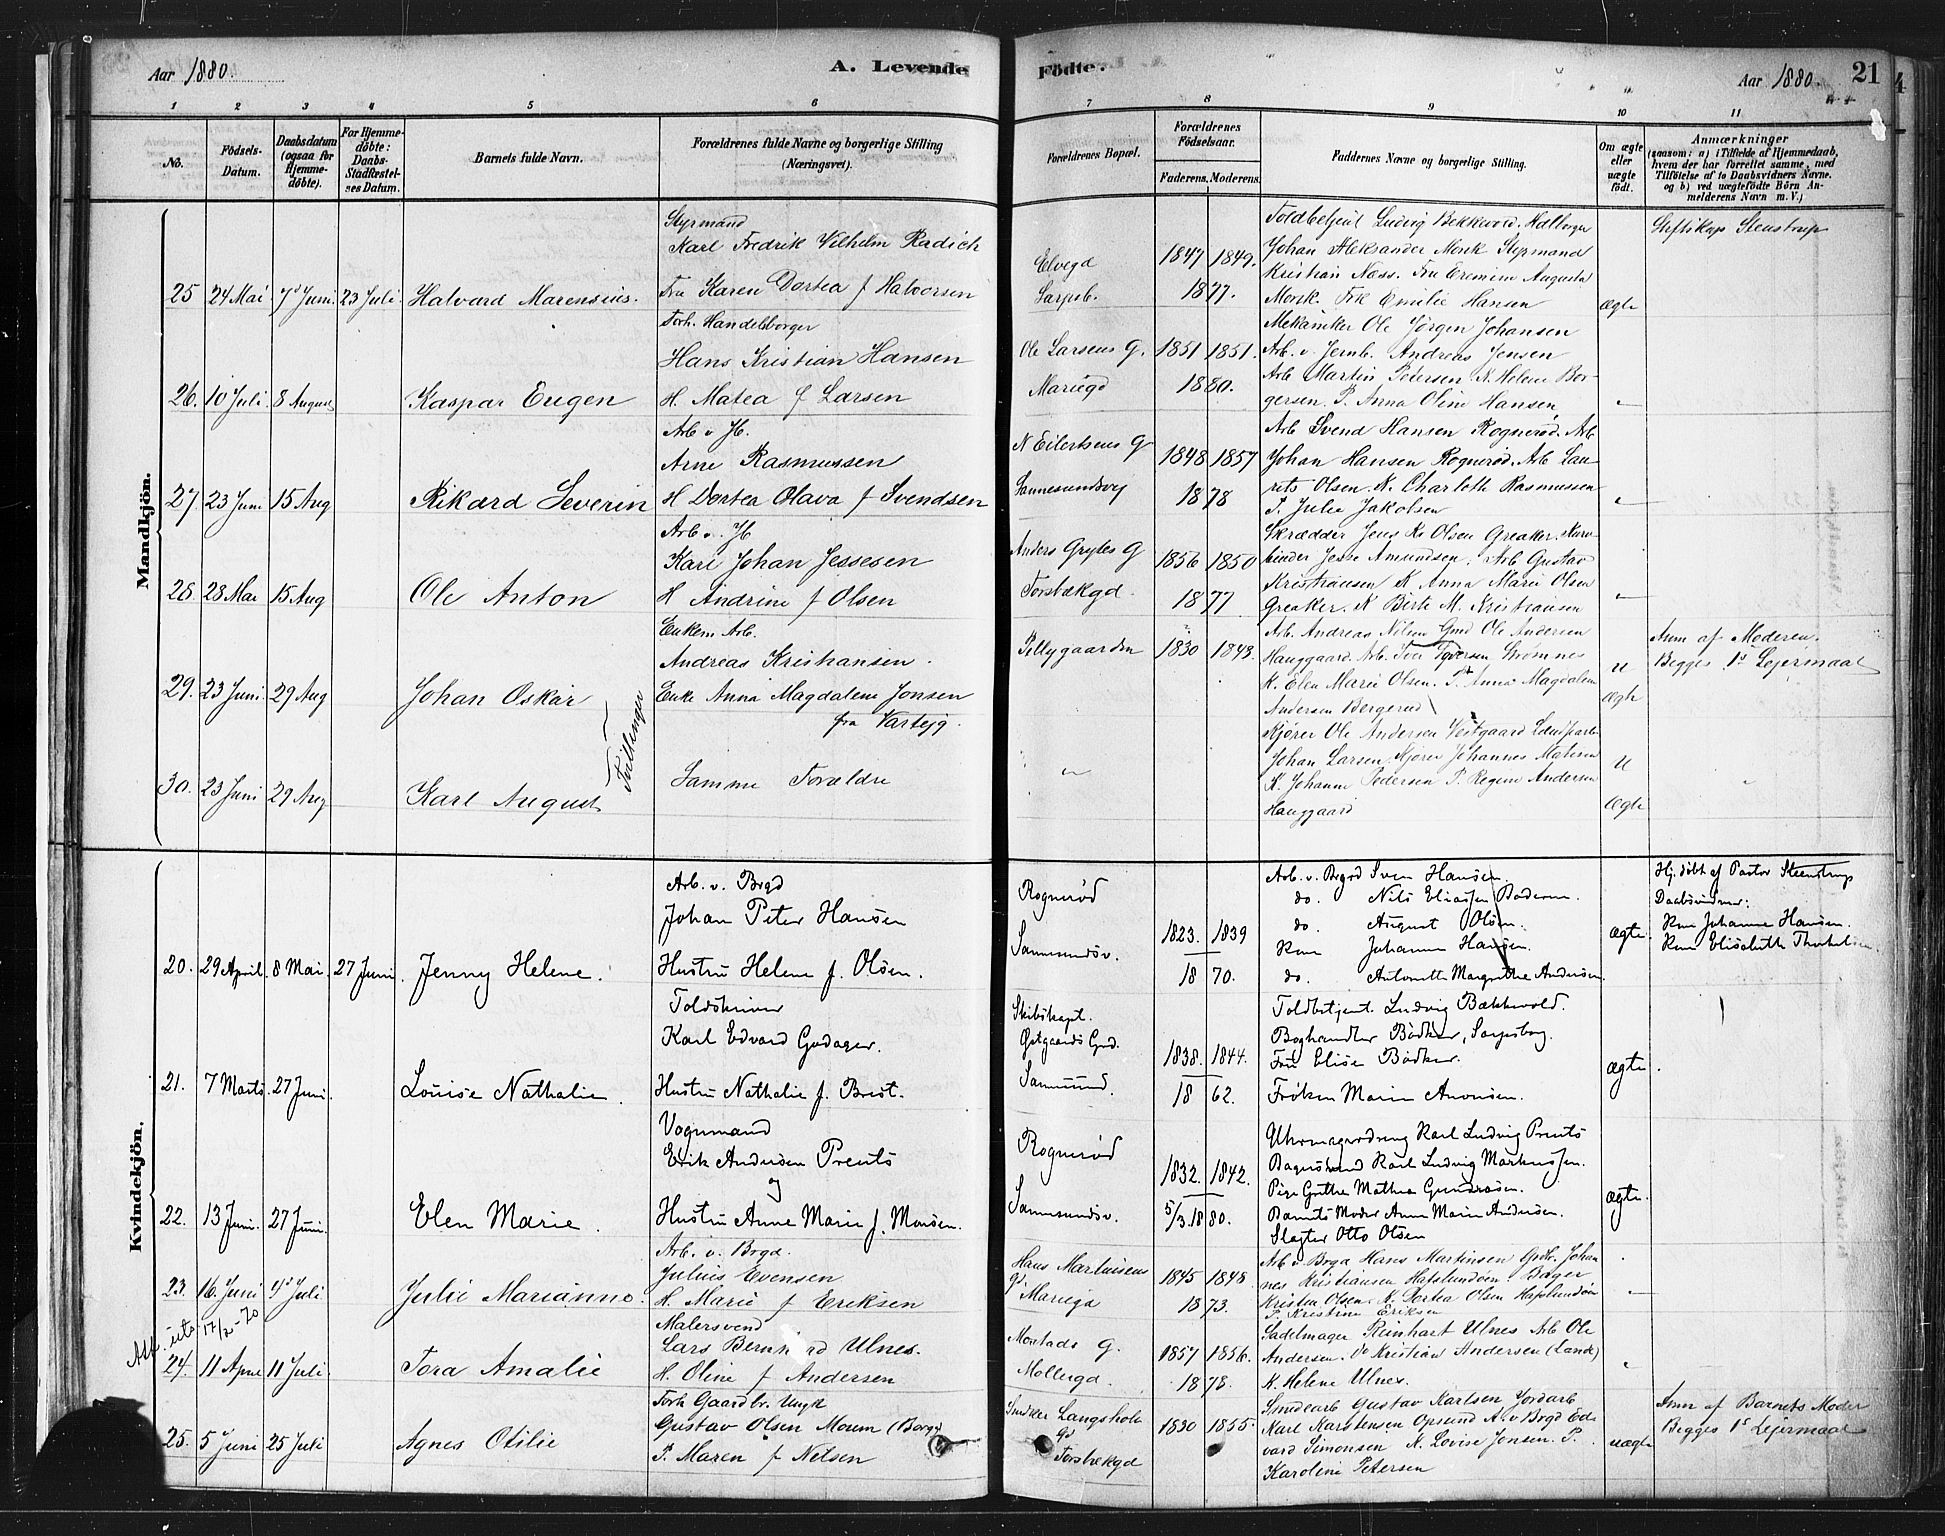 Aar 1880.
A. Levende
Födte.
Aar 1880.
21
1 2 3 4 5 6
7 8 9 10 11
No.
Födsels-Datum.
Daabsdatum (ogsaa for Hjemme-döbte).
For Hjemme-döbte: Daabs-Stadfæstelses Datum.
Barnets fulde Navn.
Forældrenes fulde Navne og borgerlige Stilling (Næringsvei).
Forældrenes Bopæl.
Forældrenes Födselsaar.
Faderens. Moderens.
Faddernes Navne og borgerlige Stilling.
Om ægte eller uægte födt.
Anmærkninger
(saasom: a) i Tilfælde af Hjemmedaab,
hvem der har forrettet samme, med
Tilföielse af to Daabsvidners Navne.
og b) ved uægtefödte Börn An-
melderens Navn m. V.)
Mandkjön.
Styrmand
Karl Fredrik Vilhelm Radich
25 24 Mai 7d Juni 23 Juli Halvard Marensius. Fru Karen Dortea f Halvorsen
Elvegd
Sarpsb.
1847 1849.
1877.
Toldbetjent Ludvig Bekkevord. Hdlborger
Johan Aleksander Mork Styrmand
Kristian Næss. Fru Eremine Augusta
Mork. Frk Emilie Hansen
ægte
Stiftskap Stenstrup
Forh. Handelsborger
Hans Kristian Hansen
26. 10 Juli. 8 August Kaspar Eugen H. Matea f Larsen
Ole Larsens G.
Mariegd
1851 1851.
1880.
Mekaniker Ole Jørgen Johansen
Arb. v. Jernb. Andreas Jensen
Arb Martin Pedersen. K. Helene Bor-
gersen. P. Anna Oline Hansen
Arb v Jb.
Arne Rasmussen
27. 23 Juni 15 Aug Rikard Severin H Dortea Olava f Svendsen
N Eilertsens G
Sannesundsvj
1848 1857
1878
Arb Svend Hansen Rognerød. Arb
Johan Hansen Rognerød. Arb Lau-
rits Olsen. K. Charloth Rasmussen
P. Julie Jakobsen
Arb v. Jb
Karl Johan Jessesen
28. 28 Mai 15 Aug Ole Anton H Andrine f Olsen
Anders Grytes G
Torsbækgd.
1856 1850
1877
Skrædder Jens Kr Olsen Greaker.
Jesse Amundsen. Arb Gustav
Kristiansen K Anna Marie Olsen
Greaker. K Birte M. Kristiansen
Enkem Arb.
Andreas Kristiansen.
29. 23 Juni 29 Aug Johan Oskar Enke Anna Magdalene Jonsen
fra Varteig.
Tvillinger
Pellygaarden
1830 1843.
Arb. Andreas Nilsen Gmd Ole Andersen
Hauggaard. Arb. Iver Iversen Strømnes
K. Elen Marie Olsen. P. Anna Magdalene
Andersen Bergerud
u
Ægte
Anm af Moderen.
Begges 1s Lejermaal
30. 23 Juni 29 Aug Karl August Samme Forældre
Kjører Ole Andersen Vestgaard
Johan Larsen. Kjører Johannes Matisen
K. Johanne Pedersen P. Regine Andersen
Hauggaard
u
Ægte
Kvindekjön.
Arb. v. Brgd
Johan Peter Hansen
20. 29 April 8 Mai. 27 Juni Jenny Helene. Hustru Helene f. Olsen.
Rognerød
Sannesundsv.
1823. 1839
1870.
Arb. v. Brgd Sven Hansen.
do. Nils Eliassen Baderen.
do. August Olsen.
Kone Johanne Hansen.
do. Antonette Margrethe Andersen.
ægte
Hj. døbt af Pastor Steenstrup
Daabsvidner:
Kone Johanne Hansen.
Kone Elisabeth
Toldskriver
Karl Edvard Godager.
21. 7 Marts 27 Juni. Louise Nathalie. Hustru Nathalie f. Brest.
Skibskapt.
Østgaards Grd.
Sannesund.
1838. 1844.
1862.
Toldbetjent. Ludvig Bækkevold.
Boghandler Bødker, Sarpsborg.
Fru Elise Bødker.
Frøken Marie Aronsen.
ægte.
Vognmand
Erik Andersen Prents
og
22. 13 Juni. 27 Juni. Elen Marie. Hustru Anne Marie f. Monsen.
Rognerød
Sannesundsv.
1832. 1842.
5/3 1880.
Karl Ludvig Prents
Bagersvend Karl Ludvig Markussen.
Pige Grethe Mathea Gundersen.
Barnets Moder Anne Marie Andersen.
Slagter Otto Olsen
ægte.
Arb. v. Brgd.
Julius Evensen
23. 16. Juni 4d Juli Julie Marianne. H. Marie f Eriksen
Hans Martinsens
gd Mariegd
1845 1848
1873.
Arb v Brgd Hans Martinsen Gdbr. Johan
nes Kristiansen Hafslundsøen. Bager
Kristen Olsen. K. Dortea Olsen Hafslundsøen
P. Kristine Eriksen
Att. uts 17/2-70
Malersvend
Lars Bernhard Ulnes.
24. 11 April 11 Juli. Tora Amalie H. Oline f Andersen
G.
Møllergd.
1857 1856.
1878.
Sadelmager Reinhart Ulnes Arb Ole
Andersen. Do Kristian Andersen (Lande)
K. Helene Ulnes.
Forh Gaardbr. Ungk
Gustav Olsen Moum (Borge)
25. 5 Juni 25 Juli Agnes Otilie P. Maren f Nilsen
Snekker Langsholt
gd
Torsbækgd
1830 1855.
Smedearb Gustav Karlsen Jordarb
Karl Karstensen Opsund A. v Brgd Ed-
vard Simonsen K. Lovise Jensen. P.
Karoline Petersen
uægte
Anm af Barnets Moder
Begges 1s Lejermaal